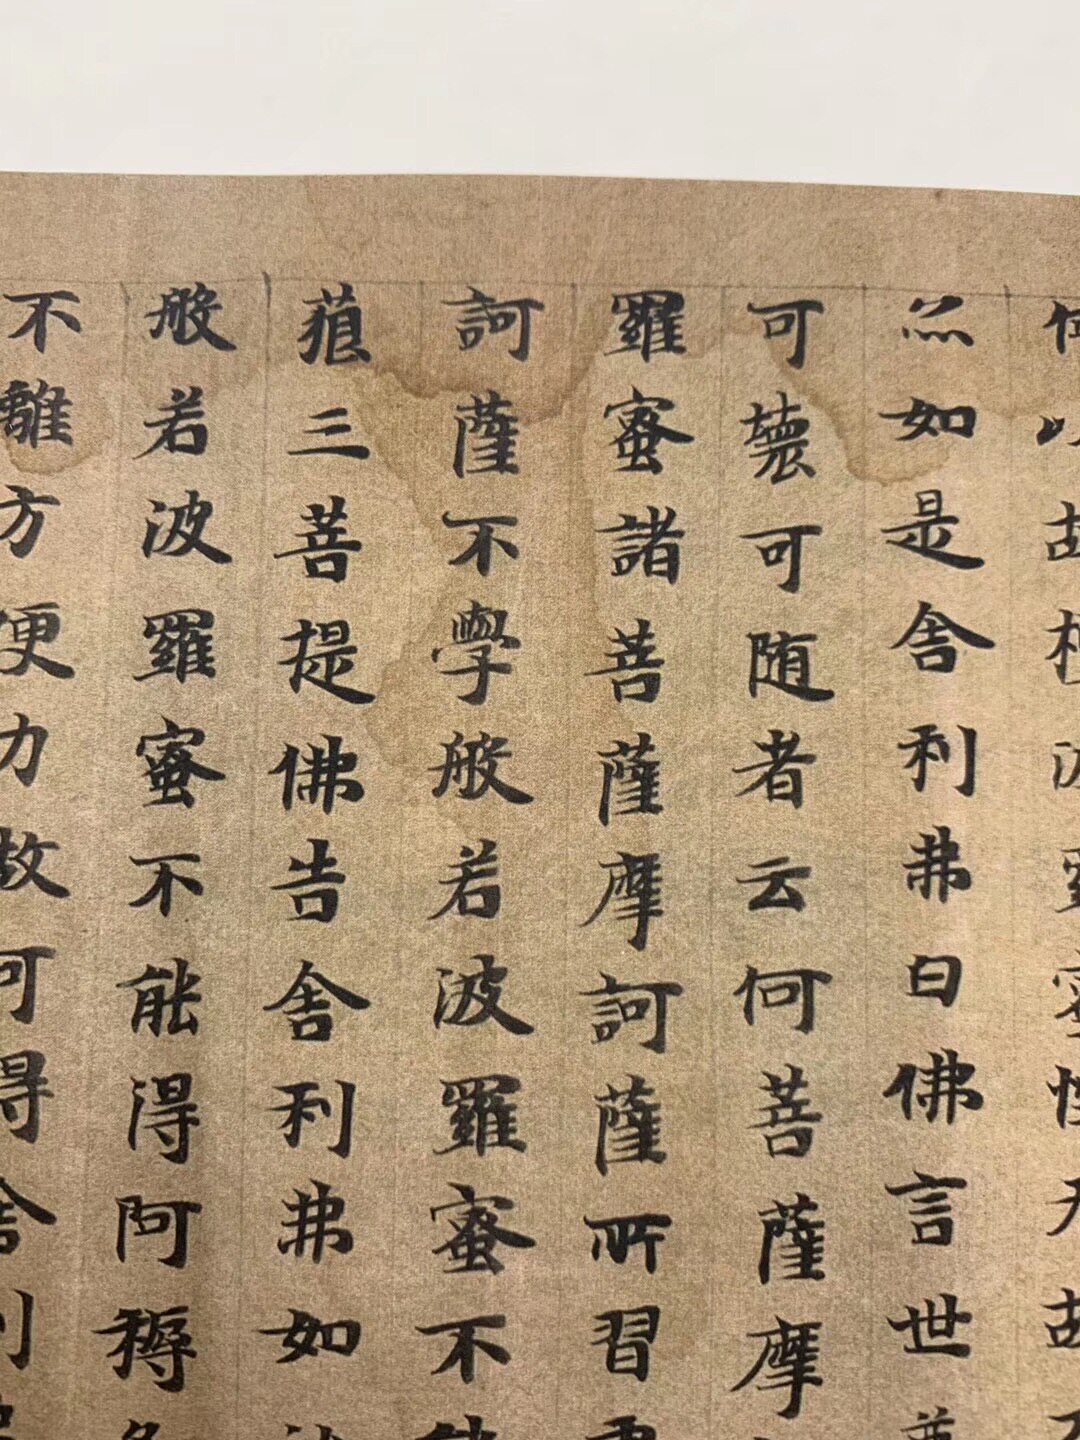 故
亦如是舍利弗白佛言世
可壞可随者云何菩薩摩
羅蜜諸菩薩摩訶薩所習
訶薩不學般若波羅蜜不
藐三菩提佛告舍利弗如
般若波羅蜜不能得阿耨
不離方便力故可得舍利